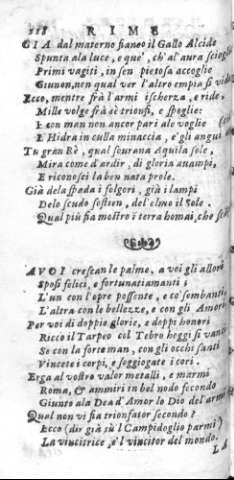 118 RIME
GIA dal materno fianco il Gallo Alcide
Spunta a la luce, e que', ch'al'aura scioglie
Primi vagiti, in sen pietosa accoglie
Giunon, non qual ver l'altro empia si vide
Ecco, mentre frà l'armi ischerza, e ride,
Mille volge frà sè trionfi, e spoglie:
E con man non ancor pari alle voglie
L'Hidra in culla minaccia, e gli angui
Tu gran Rè, qual sourana Aquila sole,
Mira come d'ardir, di gloria auampi,
E riconosci la ben nata prole.
Già de la spada i folgori, già i lampi
De lo scudo sostien, del elmo il Sole.
Qual più fia mostro i terra homai, che
A VOI crescan le palme, a voi gli allori
Sposi felici, e fortunatiamanti;
L'un con l'opre possente, e co' sembianti
L'altra con le bellezze, e con gli Amori
Per voi di doppie glorie, e doppi honori
Ricco il Tarpeo col Tebro heggi si vanti
Se con la forte man, con gli occhi santi
Vincete i corpi, e soggiogate i cori.
Erga al vostro valor metalli, e marmi
Roma, & ammiri in bel nodo fecondo
Giunto ala Dea d'Amor lo Dio del'armi
Qual non vi fia trionfator secondo?
Ecco (dir già sù l'Campidoglio parmi)
La vincitrice, e'l vincitor del mondo.
LA